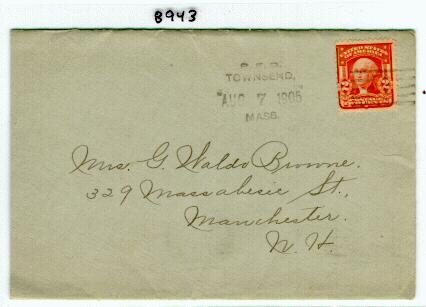 8943
R.F.D.
TOWNSEND,
AUG 7 1905
MASS.
UNITED STATES
OF AMERICA
2 2
Mrs. G. Waldo Browne.
329 Massabesic St.,
Manchester.
N. H.